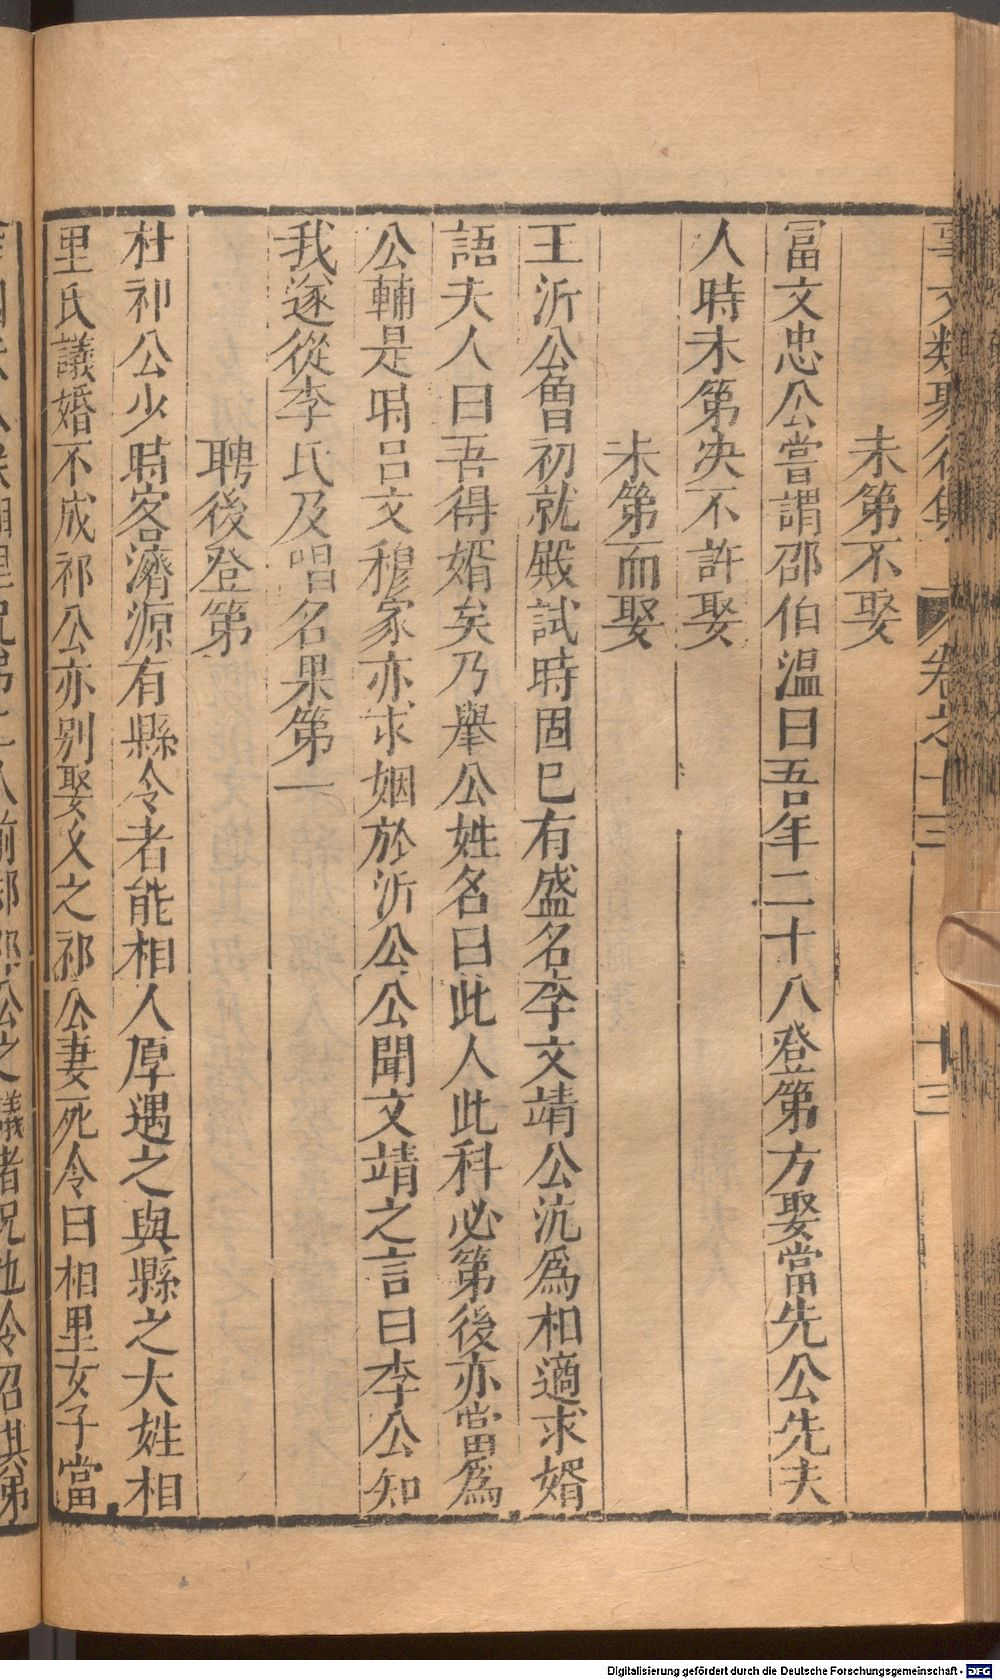 事文類聚後集 卷之十三 十三
未第不娶
冨文忠公嘗謂邵伯温曰吾年二十八登第方娶當先公先夫
人時未第决不許娶
未第而娶
王沂公曾初就殿試時固已有盛名李文靖公沆爲相適求婿
語夫人曰吾得婿矣乃舉公姓名曰此人此科必第後亦當爲
公輔是時吕文穆家亦求姻於沂公公聞文靖之言曰李公知
我遂從李氏及唱名果第一
聘後登第
杜祁公少時客濟源有縣令者能相人厚遇之與縣之大姓相
里氏議婚不成祁公亦别娶久之祁公妻死令曰相里女子當
前部郎公之議者况也令召其弟
Digitalisierung gefördert durch die Deutsche Forschungsgemeinschaft - DFG